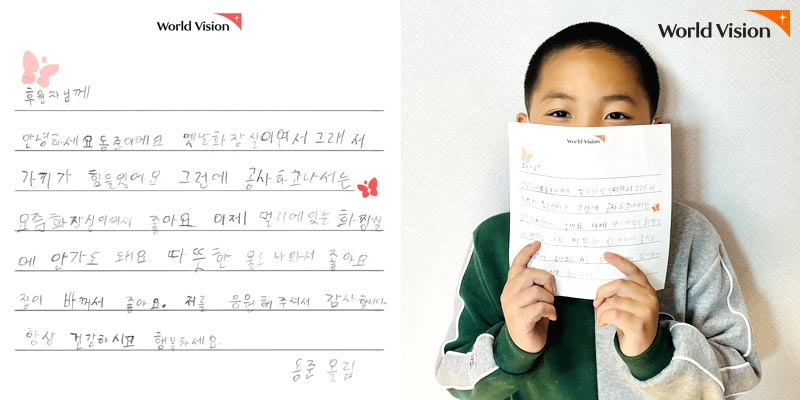 World Vision
후원자님께
안녕하세요 동준이에요 옛날화장실이여서 그래서
가기가 힘들었어요 그런데 공사하고나서는
요즘화장실이여서 좋아요 이제 멀리에있는 화장실
에 안가도 돼요 따뜻한 물도 나와서 좋아요.
집이 바껴서 좋아요. 저를 응원해 주셔서 감사합니다.
항상 건강하시고 행복하세요.
동준 올림
World Vision
World Vision